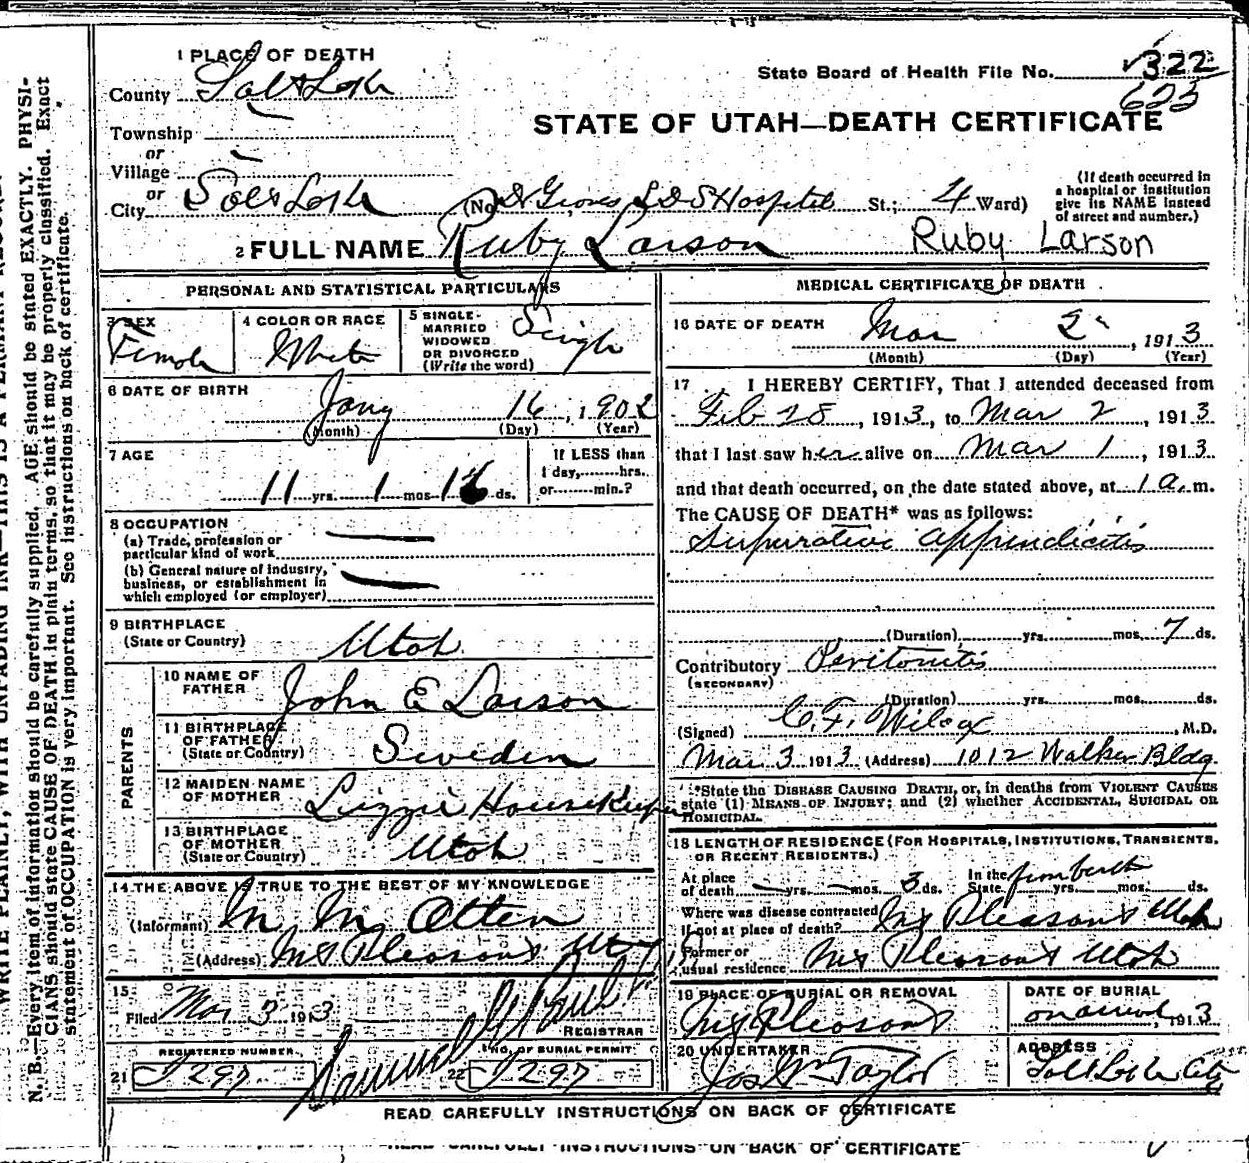 1 PLACE OF DEATH
County Salt Lake
Township
or
Village
or
City Salt Lake (No. Dr Groves LDS Hospital St.; 4 Ward)
(If death occurred in a hospital or institution give its NAME instead of street and number.)
State Board of Health File No. 322
623
STATE OF UTAH—DEATH CERTIFICATE
2 FULL NAME Ruby Larson Ruby Larson
PERSONAL AND STATISTICAL PARTICULARS
3 SEX
Female
4 COLOR OR RACE
White
5 SINGLE-
MARRIED
WIDOWED
OR DIVORCED
(Write the word)
Single
6 DATE OF BIRTH
Jany 16, 1902
(Month) (Day) (Year)
7 AGE
11 yrs. 1 mos. 16 ds.
If LESS than
1 day,........hrs.
or........min.?
8 OCCUPATION
(a) Trade, profession or
particular kind of work
(b) General nature of industry,
business, or establishment in
which employed (or employer)
9 BIRTHPLACE
(State or Country)
Utah
PARENTS
10 NAME OF
FATHER
John E Larson
11 BIRTHPLACE
OF FATHER
(State or Country)
Sweden
12 MAIDEN NAME
OF MOTHER
Lizzie Housekeeper
13 BIRTHPLACE
OF MOTHER
(State or Country)
Utah
14 THE ABOVE IS TRUE TO THE BEST OF MY KNOWLEDGE
(Informant) M M Otten
(Address) Mt Pleasant Utah
15
Filed Mar 3 1913
REGISTRAR
REGISTERED NUMBER
21 J 297
NO. OF BURIAL PERMIT
22 J 297
MEDICAL CERTIFICATE OF DEATH
16 DATE OF DEATH
Mar 2, 1913
(Month) (Day) (Year)
17 I HEREBY CERTIFY, That I attended deceased from
Feb 28, 1913, to Mar 2, 1913
that I last saw her alive on Mar 1, 1913
and that death occurred, on the date stated above, at 1 a. m.
The CAUSE OF DEATH* was as follows:
Supurative appendicitis
(Duration) yrs. mos. 7 ds.
Contributory Peritonitis
(SECONDARY)
(Duration) yrs. mos. ds.
(Signed) C. F. Wilcox, M.D.
Mar 3 1913 (Address) 1012 Walker Bldg
*State the DISEASE CAUSING DEATH, or, in deaths from VIOLENT CAUSES
state (1) MEANS OF INJURY; and (2) whether ACCIDENTAL, SUICIDAL OR
HOMICIDAL.
18 LENGTH OF RESIDENCE (FOR HOSPITALS, INSTITUTIONS, TRANSIENTS,
OR RECENT RESIDENTS.)
At place
of death yrs. mos. 3 ds. In the
State from birth yrs. mos. ds.
Where was disease contracted
If not at place of death? Mt Pleasant Utah
Former or
usual residence Mt Pleasant Utah
19 PLACE OF BURIAL OR REMOVAL
Mt Pleasant
DATE OF BURIAL
on arrival, 1913
20 UNDERTAKER
Jos Wm Taylor
ADDRESS
Salt Lake City
READ CAREFULLY INSTRUCTIONS ON BACK OF CERTIFICATE
READ CAREFULLY INSTRUCTIONS ON BACK OF CERTIFICATE
WRITE PLAINLY, WITH UNFADING INK—THIS IS A PERMANENT RECORD.
N. B.—Every item of information should be carefully supplied. AGE should be stated EXACTLY. PHYSI-
CIANS should state CAUSE OF DEATH in plain terms, so that it may be properly classified. Exact
statement of OCCUPATION is very important. See instructions on back of certificate.